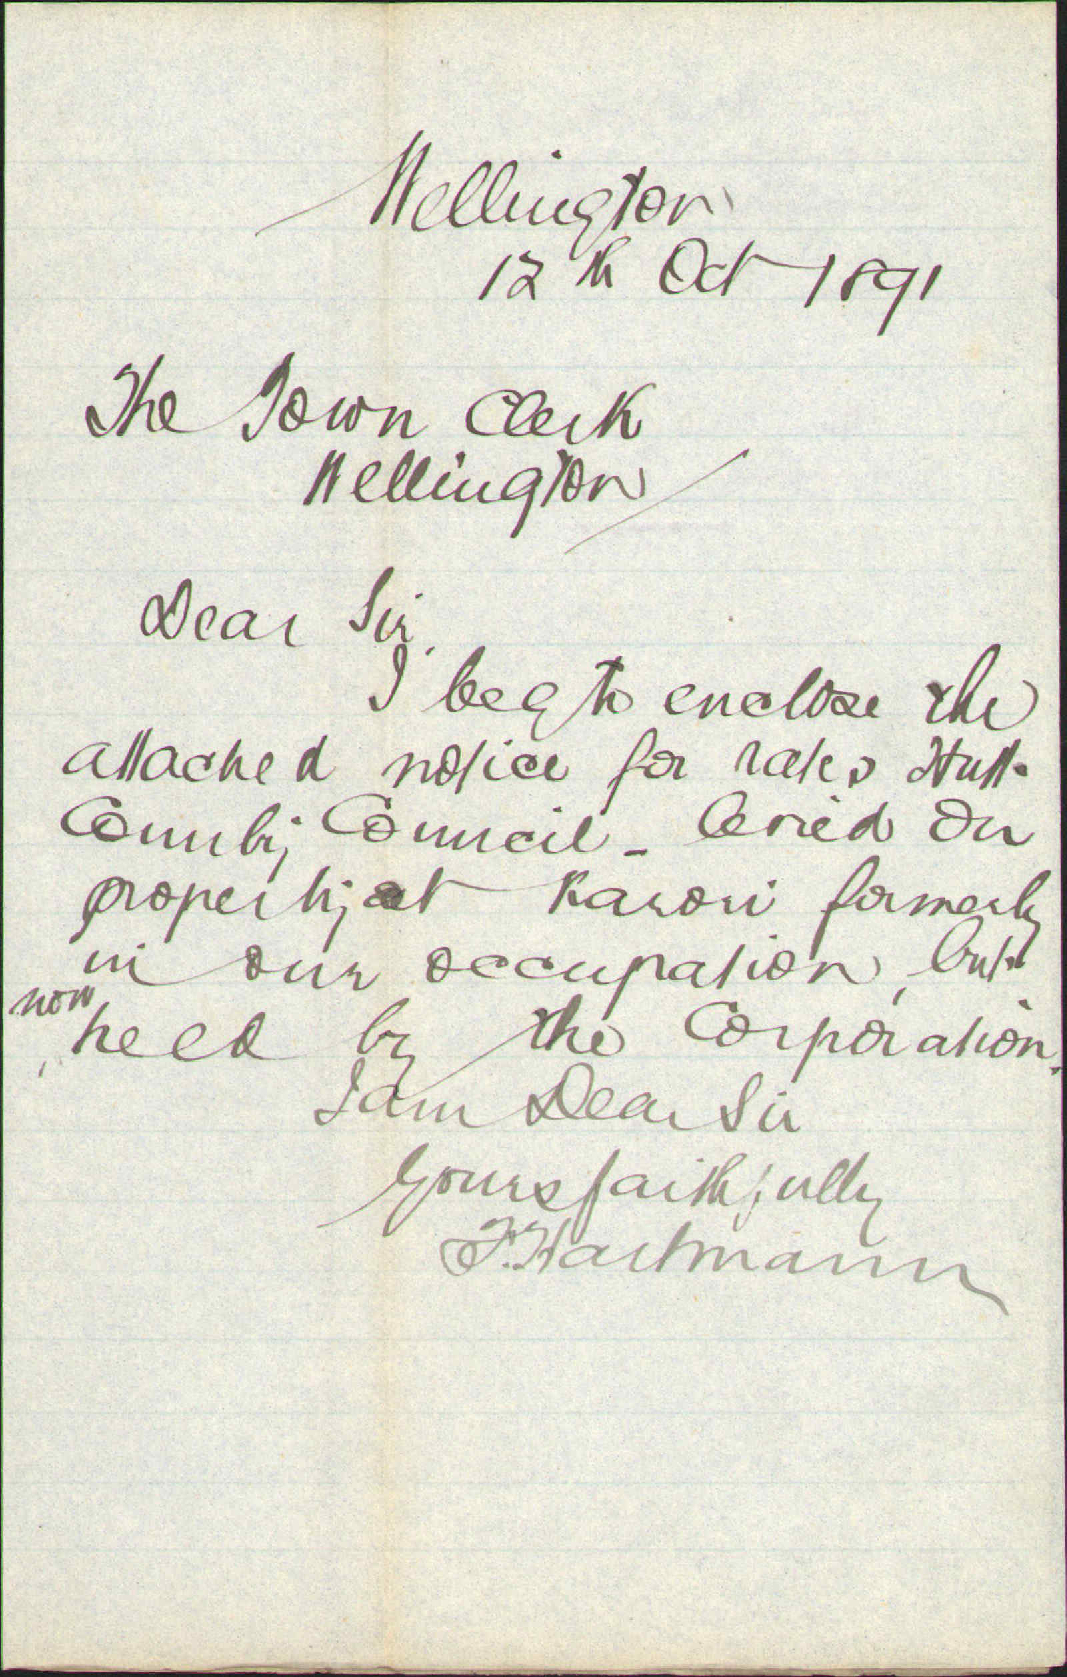 Wellington
12th Oct 1891
The Town Clerk
Wellington
Dear Sir,
I beg to enclose the
attached notice for rates Hutt
County Council - levied on
property at Karori formerly
in our occupation, but
now
held by the Corporation.
I am Dear Sir
Yours faithfully
F. Hartmann